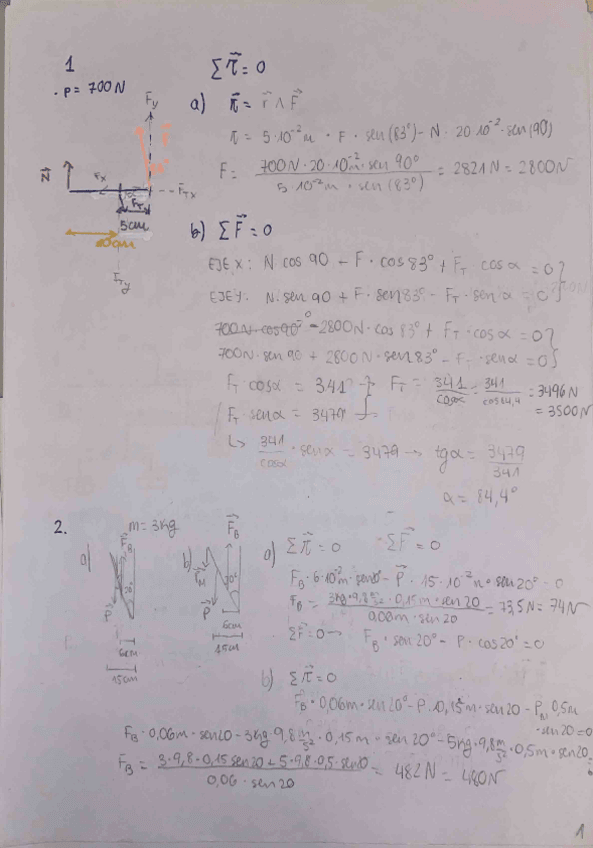 1
Σπ⃗ = 0
· P = 700N
a) π⃗ = r⃗ ∧ F⃗
Fy
π = 5·10⁻²m · F · sen(83°) - N · 20·10⁻² · sen(90)
F = 700N · 20·10⁻²m · sen 90° / 5·10⁻²m · sen(83°) = 2821N = 2800N
N⃗
Fx
FTx
5cm
b) ΣF⃗ = 0
FTy
EJE X: N cos 90 - F · cos 83° + FT · cos α = 0
EJE Y: N · sen 90 + F · sen 83° - FT · sen α = 0
700N · cos 90° - 2800N · cos 83° + FT · cos α = 0
700N · sen 90 + 2800N · sen 83° - FT · sen α = 0
FT · cos α = 341 } FT = 341 / cos α = 341 / cos 84,4 = 3496N
FT · sen α = 3479
= 3500N
↳ 341 / cos α · sen α = 3479 → tg α = 3479 / 341
α = 84,4°
2. m = 3kg
a)
FB
20°
P⃗
6cm
15cm
b)
F⃗B
F⃗M
20°
P⃗
6cm
15cm
a) Σπ⃗ = 0 ΣF⃗ = 0
FB · 6·10⁻²m · sen20° - P⃗ · 15·10⁻²m · sen 20° = 0
FB = 3kg · 9,8 m/s² · 0,15m · sen 20 / 0,06m · sen 20 = 73,5N = 74N
ΣF⃗ = 0 → FB · sen 20° - P · cos 20° = 0
b) Σπ⃗ = 0
F⃗B · 0,06m · sen 20° - P · 0,15m · sen 20 - PB · 0,5m
· sen 20 = 0
FB · 0,06m · sen20 - 3kg · 9,8 m/s² · 0,15m · sen 20° - 5kg · 9,8 m/s² · 0,5m · sen 20 =
FB = 3 · 9,8 · 0,15 sen 20 + 5 · 9,8 · 0,5 · sen20 / 0,06 · sen 20 = 482N = 480N
1